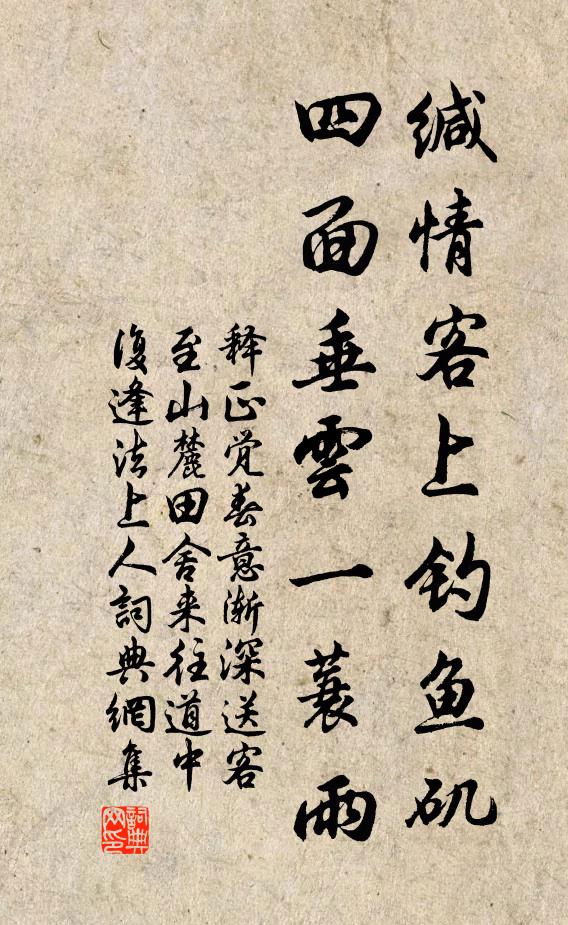 缄情客上钓鱼矶
四面垂雲一蓑雨
释正觉春意渐深送客
至山麓田舍来往道中
復逢法上人詞典網集
詞典網印